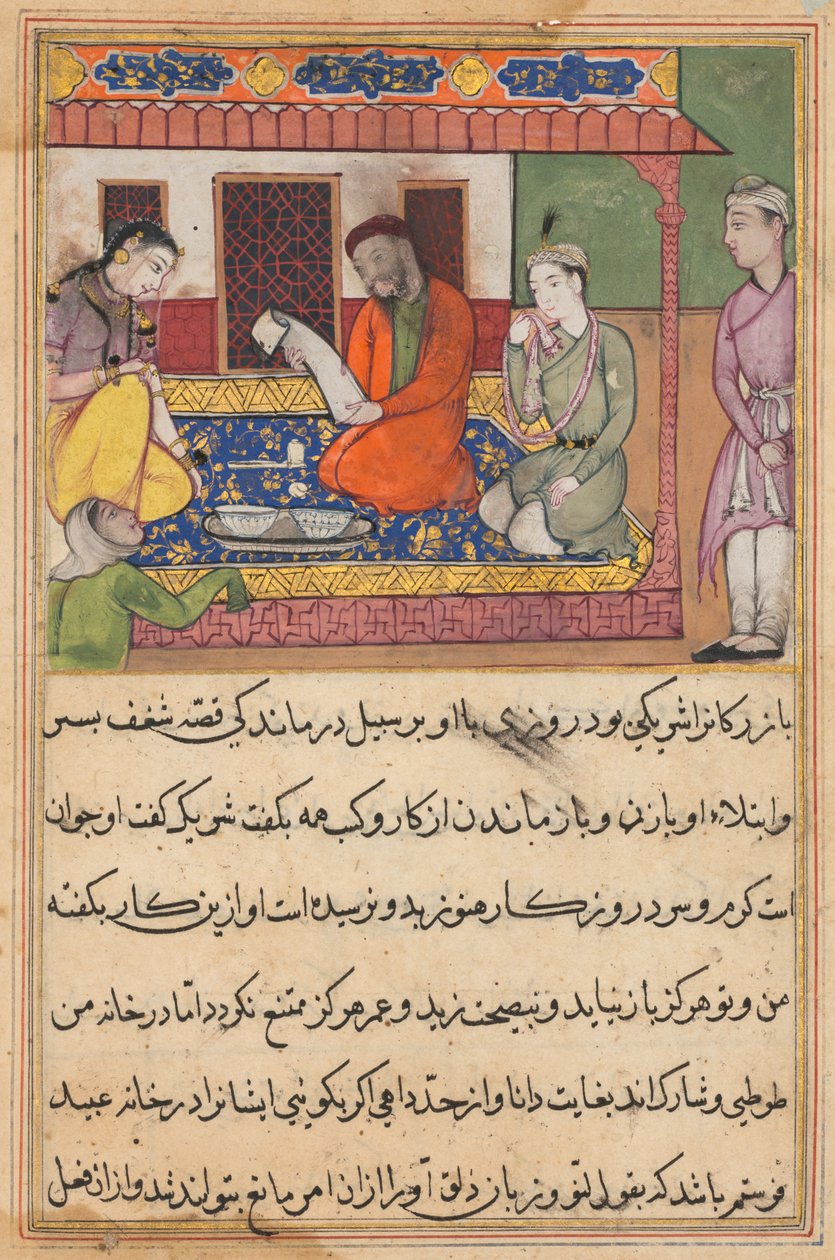 بازرکانرا شریکی بود روزی با او بر سبیل درماندکی قصّه شغف پسر
وابتلاء او با زن و باز ماندن از کار و کسب همه بکفت شریک کفت او جوان
است کرم و سرد روزکار هنوز بد و نرسیده است او ازین کار بکفته
من و تو هرکز باز نیاید و بنصیحت زید و عمر هرکز ممتنع نکردد امّا در خانه من
طوطیی و شارک اند بغایت دانا و از حدّ داهی اکر بکوئی ایشانرا در خانه عبید
فرستم باشد که بقول و زبان ذلق او را از ان امر مانع بتوانند شد و از ان فعل